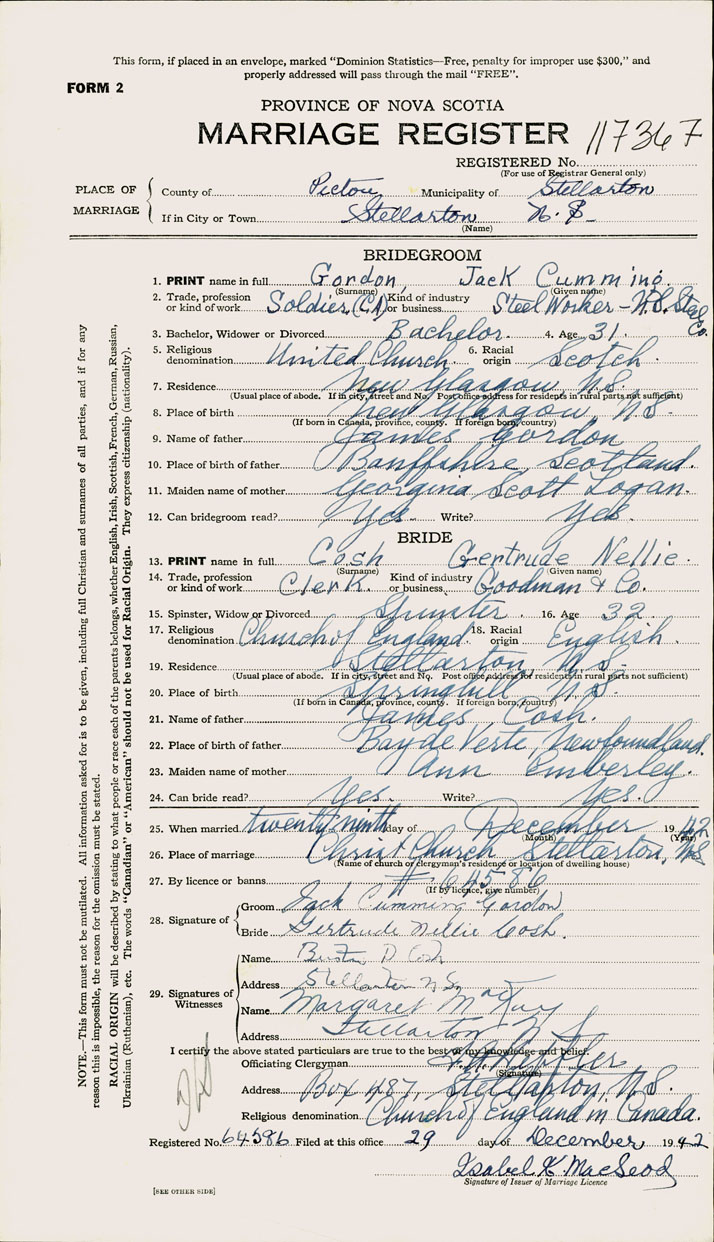 This form, if placed in an envelope, marked "Dominion Statistics—Free, penalty for improper use $300," and
properly addressed will pass through the mail "FREE".
FORM 2
PROVINCE OF NOVA SCOTIA
MARRIAGE REGISTER 117367
REGISTERED No.
(For use of Registrar General only)
PLACE OF MARRIAGE
County of Pictou Municipality of Stellarton
If in City or Town Stellarton N.S.
(Name)
BRIDEGROOM
1. PRINT name in full Gordon, Jack Cumming.
(Surname) (Given name)
2. Trade, profession or kind of work Soldier (CA) Kind of industry or business Steel Worker - N.S. Steel Co.
3. Bachelor, Widower or Divorced Bachelor. 4. Age 31.
5. Religious denomination United Church. 6. Racial origin Scotch.
7. Residence New Glasgow, N.S.
(Usual place of abode. If in city, street and No. Post office address for residents in rural parts not sufficient)
8. Place of birth New Glasgow, N.S.
(If born in Canada, province, county. If foreign born, country)
9. Name of father James Gordon
10. Place of father Banffshire, Scotland.
11. Maiden name of mother Georgina Scott Logan.
12. Can bridegroom read? Yes. Write? Yes.
BRIDE
13. PRINT name in full Cosh Gertrude Nellie.
(Surname) (Given name)
14. Trade, profession or kind of work Clerk. Kind of industry or business Goodman & Co.
15. Spinster, Widow or Divorced Spinster. 16. Age 32
17. Religious denomination Church of England. 18. Racial origin English.
19. Residence Stellarton, N.S.
(Usual place of abode. If in city, street and No. Post office address for residents in rural parts not sufficient)
20. Place of birth Springhill N.S.
(If born in Canada, province, county. If foreign born, country)
21. Name of father James Cosh.
22. Place of birth of father Bay de Verte, Newfoundland.
23. Maiden name of mother Ann Emberley.
24. Can bride read? Yes. Write? Yes.
25. When married twenty ninth day of December 1942
(Month) (Year)
26. Place of marriage Christ Church Stellarton, N.S.
(Name of church or clergyman's residence or location of dwelling house)
27. By licence or banns # 64586
(If by licence, give number)
28. Signature of
Groom Jack Cumming Gordon
Bride Gertrude Nellie Cosh.
29. Signatures of Witnesses
Name D Cosh
Address Stellarton N.S.
Name Margaret MacKay
Address Stellarton N S
I certify the above stated particulars are true to the best of my knowledge and belief.
Officiating Clergyman
(Signature)
Address Box 487, Stellarton, N.S.
Religious denomination Church of England in Canada.
Registered No. 64586 Filed at this office 29 day of December, 1942
Isabel K MacLeod
Signature of Issuer of Marriage Licence
[SEE OTHER SIDE]
NOTE.—This form must not be mutilated. All information asked for is to be given, including full Christian and surnames of all parties, and if for any
reason this is impossible, the reason for the omission must be stated.
RACIAL ORIGIN will be described by stating to what people or race each of the parents belongs, whether English, Irish, Scottish, French, German, Russian,
Ukrainian (Ruthenian), etc. The words "Canadian" or "American" should not be used for Racial Origin. They express citizenship (nationality).